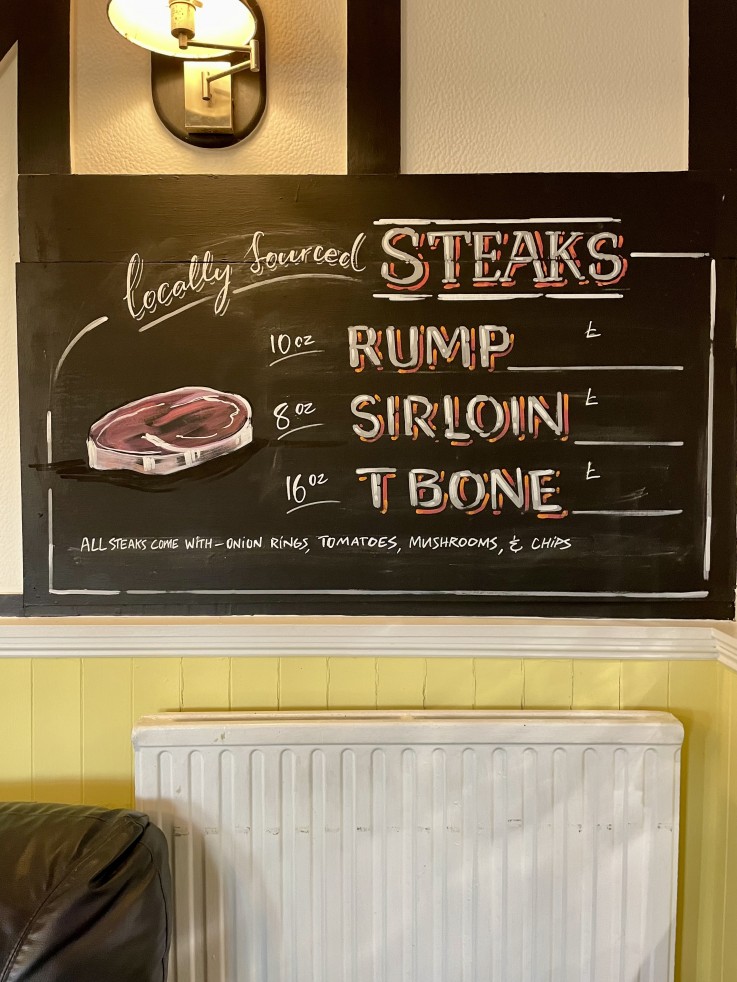 locally Sourced STEAKS
10 oz RUMP £
8 oz SIRLOIN £
16 oz T BONE £
ALL STEAKS COME WITH - ONION RINGS, TOMATOES, MUSHROOMS, & CHIPS